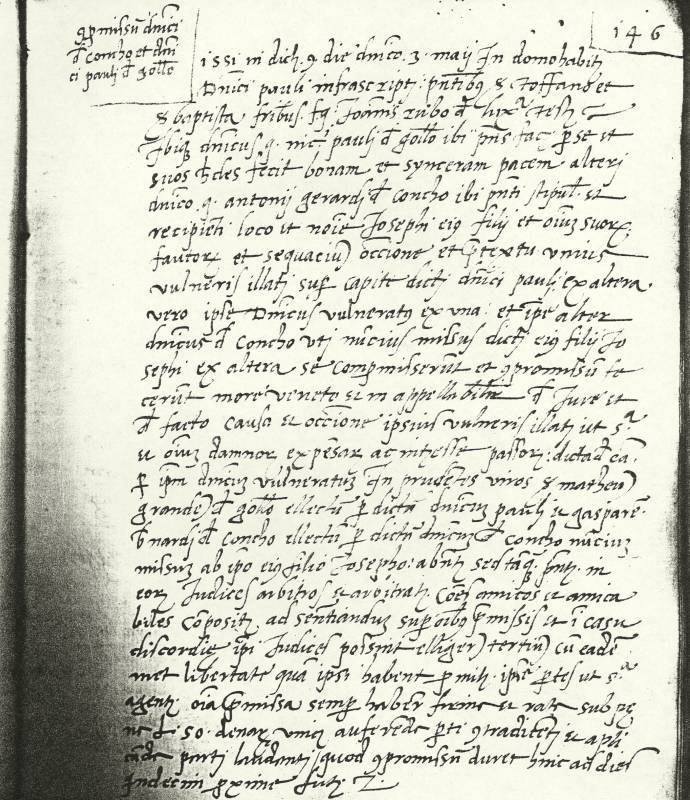 146
ꝯpmissū dnici
đ concho et dni
ci pauli đ gollo
1551 in dicti. 9 die dnico. 3. maij In domo habit.
Dnici pauli infrascripti pntibq &
& baptista fribus. fq. Joannis rubo đ
Ibiq dnicus q. nicl. pauli đ gollo ibi pns fac. p se et
suos hedes fecit bonam et synceram pacem alteri
dnico q. antonij gerardi đ concho ibi pnti stipul. et
recipienti loco et noie Josephi eiq filij et oium suorx.
fautor et sequaciu) occione et ptextu unius
vulneris illati sup capite dicti dnici pauli, ex altera.
vero ipse Dnicus vulneratq ex una. et ipe alter
dnicus đ concho uti nucius missus dicti eiq filij Jo
sephi ex altera se compmisserunt et ꝯpromissum fe
cerunt more veneto et in appellabilr đ Jure et
đ facto causa et occione ipsius vulneris illati ut s.a
et oium damnor expensar ac intesse passor.
p ipm dnicum vulneratum In prudetes viros & matheu)
grande) đ gollo ellectu p dictu dnicum pauli et gaspare.
bnardi đ concho ellectum p dictu dnicum đ concho nucium
missum ab ipo eiq filio Josepho: abnti sed tāq. pnti. in
eor Judices arbitros et arbitratr. coes amicos et amica
biles composit. ad sentiandum sup oibq pmissis et i casu
discordie ipi Judices possint elliger) tertiu) cu eade.
met libertate qua ipsi habent p mih. ipse ptes ut s.a
agenti. oia pmissa semp haber firme et rate sub pe
ne L. 50. denar. auferede pti ꝯtradicenti et apli
cāde parti laudanti, quod ꝯpromissu duret hinc ad dies
quindecim pxime futr.